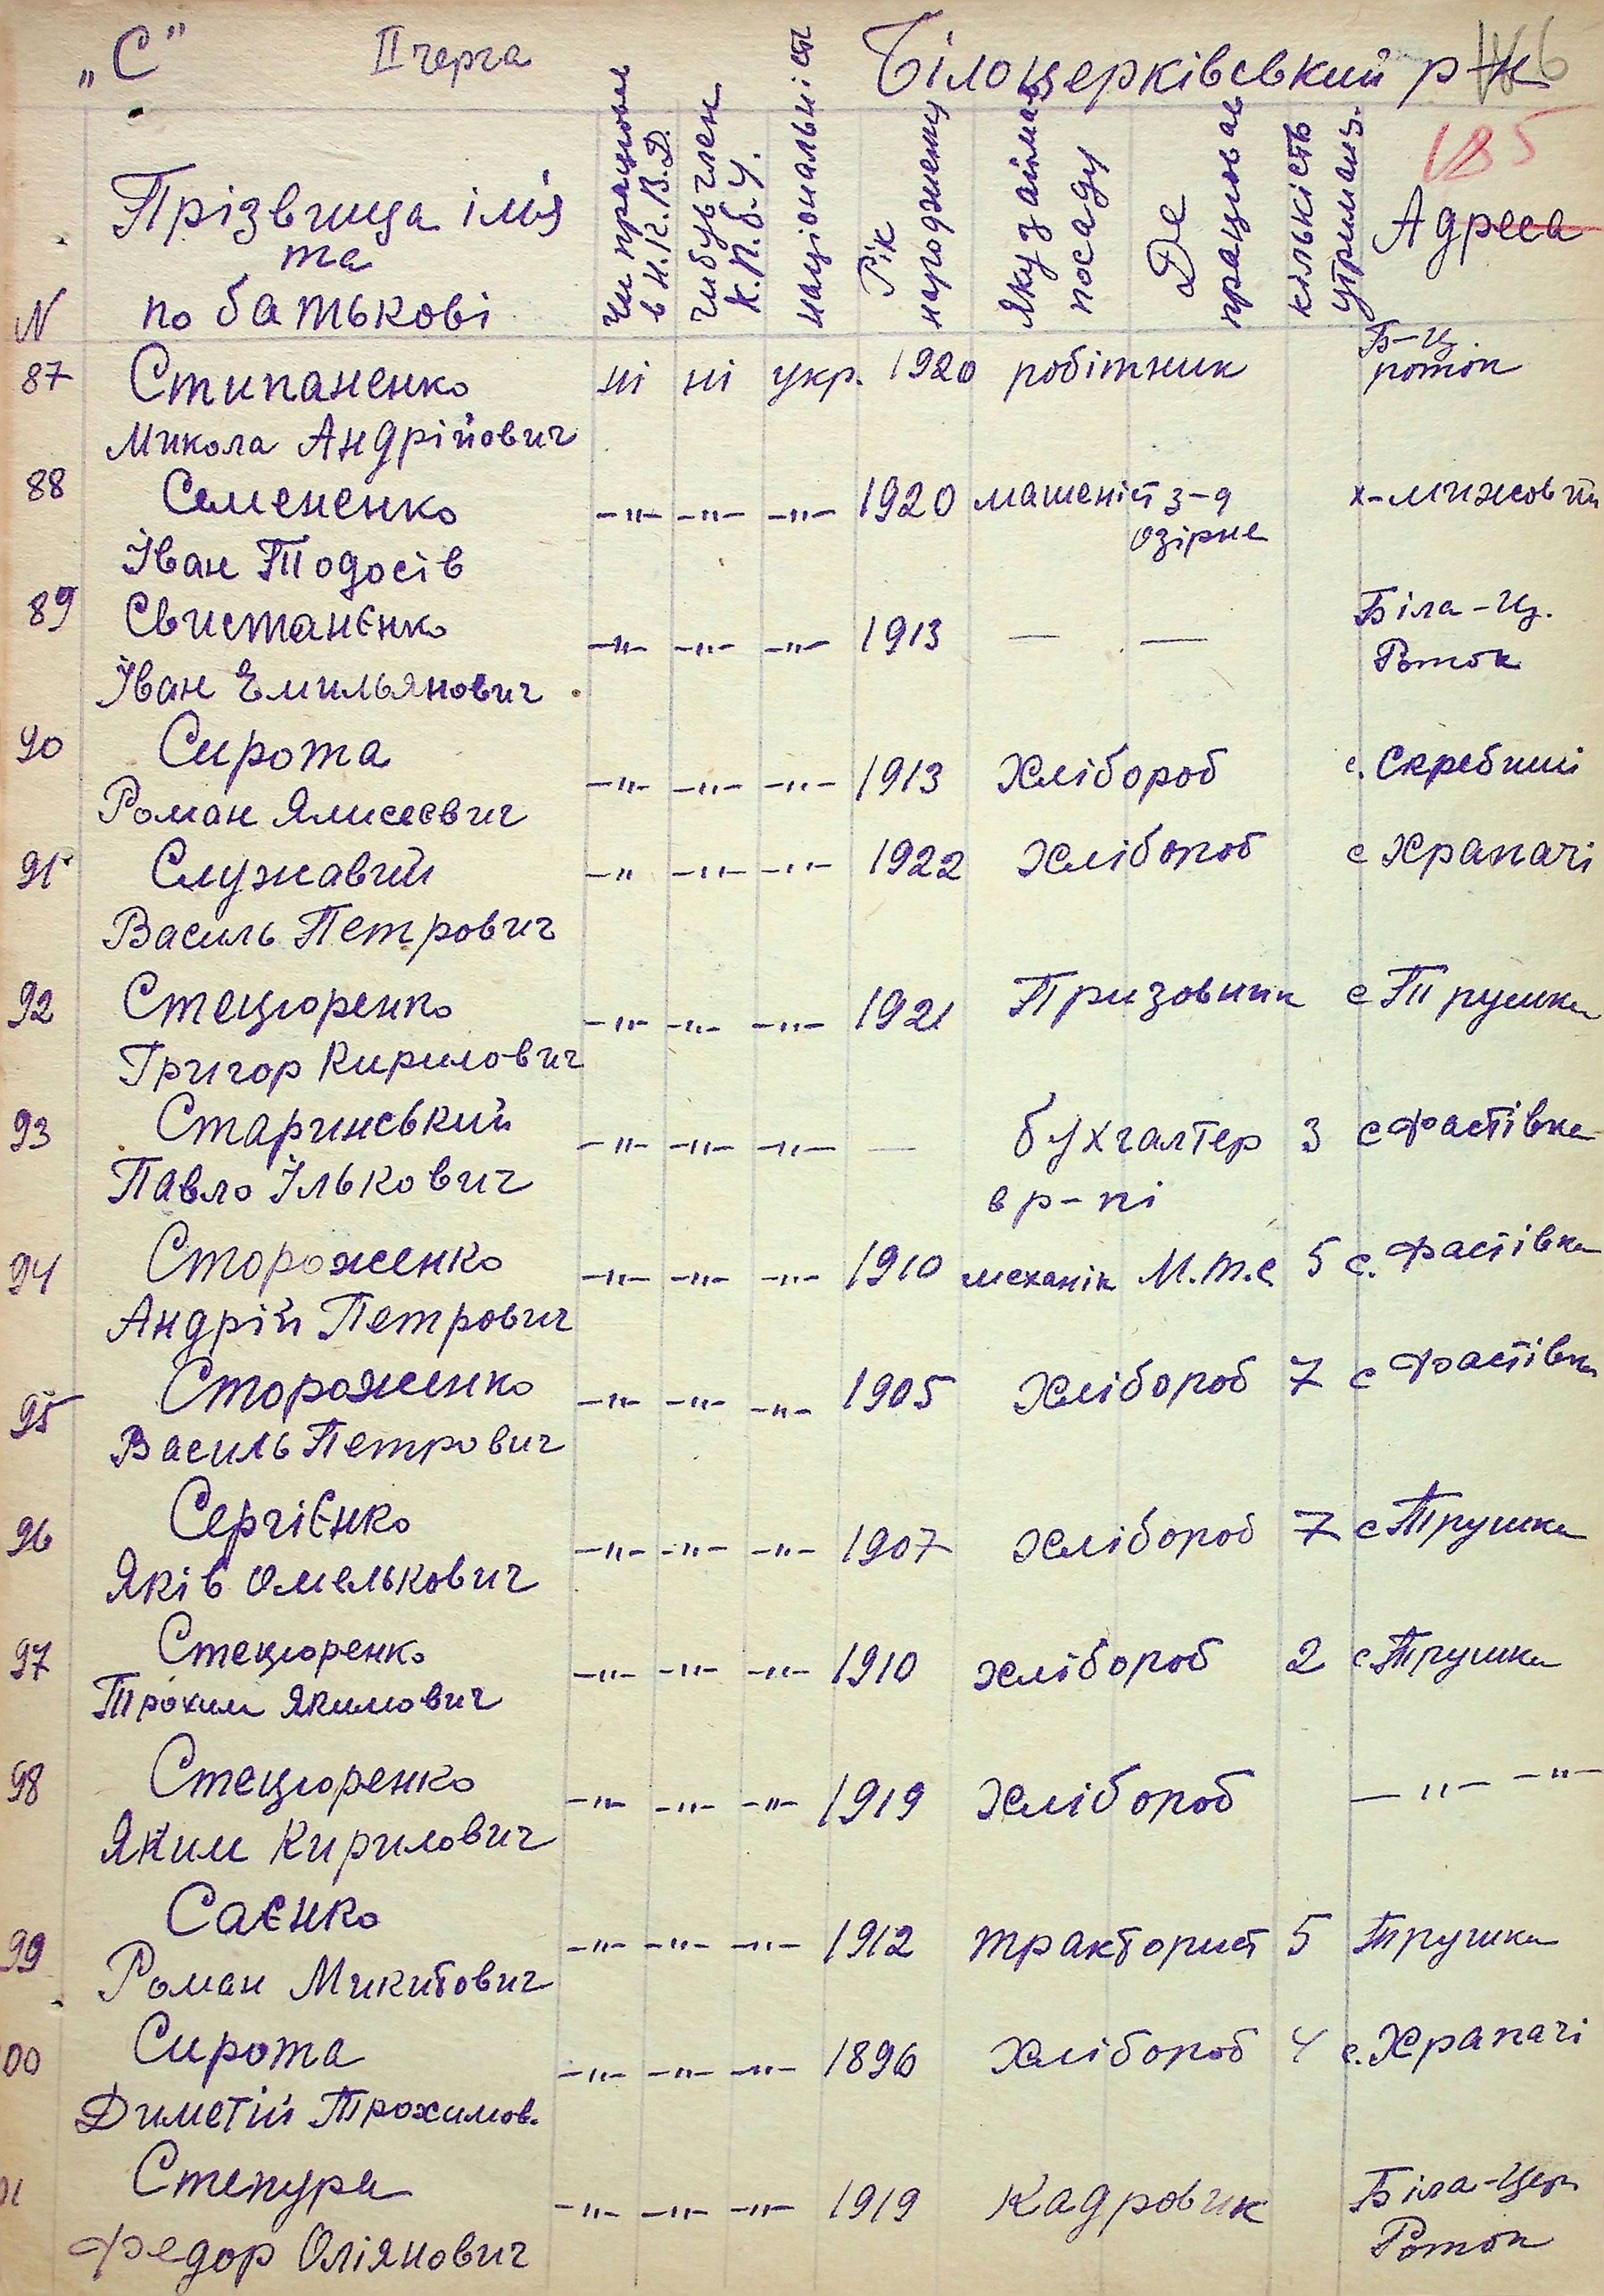 „С" ІІ черга Білоцерківський р-н
185
N Прізвища ім'я та по батькові Чи працював в Н.К.В.Д. Чи був член К.П.б.У. національність Рік народження Яку займав посаду Де працював кількість утриманц. Адреса
87 Стипаненко ні ні укр. 1920 робітник Б-Ц. роток
Микола Андрійович
88 Семененко -"- -"- -"- 1920 машеніст з-д Озірне х-Мижовий
Іван Тодосів
89 Свистанєнко -"- -"- -"- 1913 — — Біла-Ц. Роток
Іван Емильянович
90 Сирота -"- -"- -"- 1913 Хлібороб с. Скребиші
Роман Ялисеевич
91 Служавий -" -"- -"- 1922 Хлібороб с Храпачі
Василь Петрович
92 Стецюренко -"- -"- -"- 1921 Призовник с Трушки
Григор Кирилович
93 Старинський -"- -"- -"- — бухгалтер 3 с Фастівка
Павло Ількович в р-пі
94 Стороженко -"- -"- -"- 1910 механік М.т.с 5 с. Фастівка
Андрій Петрович
95 Стороженко -"- -"- -"- 1905 Хлібороб 7 с Фастівка
Василь Петрович
96 Сергієнко -"- -"- -"- 1907 Хлібороб 7 с Трушки
Яків Омелькович
97 Стецюренко -"- -"- -"- 1910 хлібороб 2 с Трушки
Трохим Якимович
98 Стецюренко -"- -"- -"- 1919 Хлібороб -"- -"-
Яким Кирилович
99 Саєнко -"- -"- -"- 1912 тракторист 5 Трушки
Роман Микитович
00 Сирота -"- -"- -"- 1896 Хлібороб 4 с. Храпачі
Диметій Трохимов.
01 Степура -"- -"- -"- 1919 Кадровик Біла-Цер Роток
Федор Оліянович